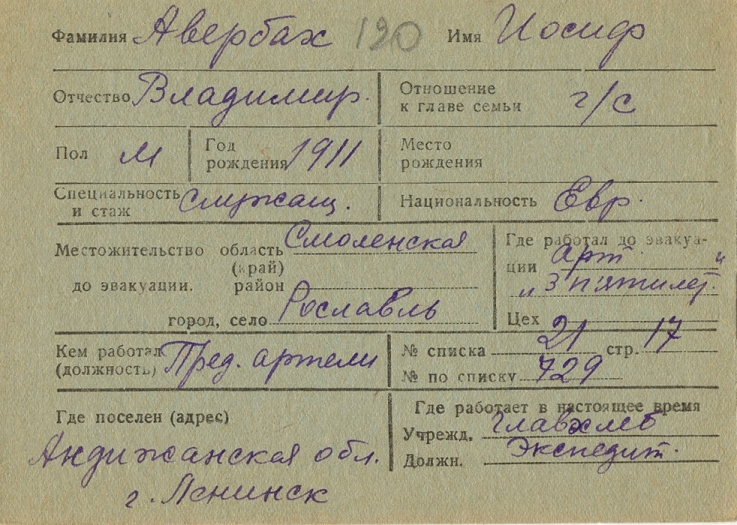 Фамилия Авербах 120 Имя Иосиф
Отчество Владимир. Отношение к главе семьи г/с
Пол М Год рождения 1911 Место рождения
Специальность и стаж служащ. Национальность Евр.
Местожительство до эвакуации. область (край) Смоленская
район
город, село Рославль
Где работал до эвакуации арт. "3 пятилет."
Цех
Кем работал (должность) Пред. артели
№ списка 21 стр. 17
№ по списку 729
Где поселен (адрес)
Андижанская обл.
г. Ленинск
Где работает в настоящее время
Учрежд. Главхлеб
Должн. Экспедит.